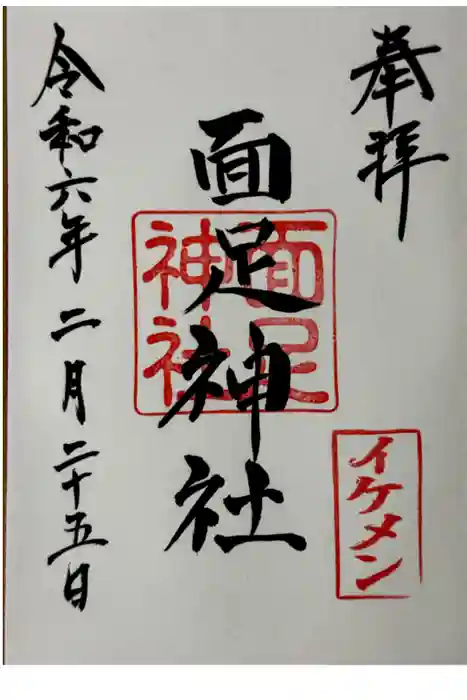 奉拝
イケメン
面足神社
面足
神社
令和六年 二月二十五日